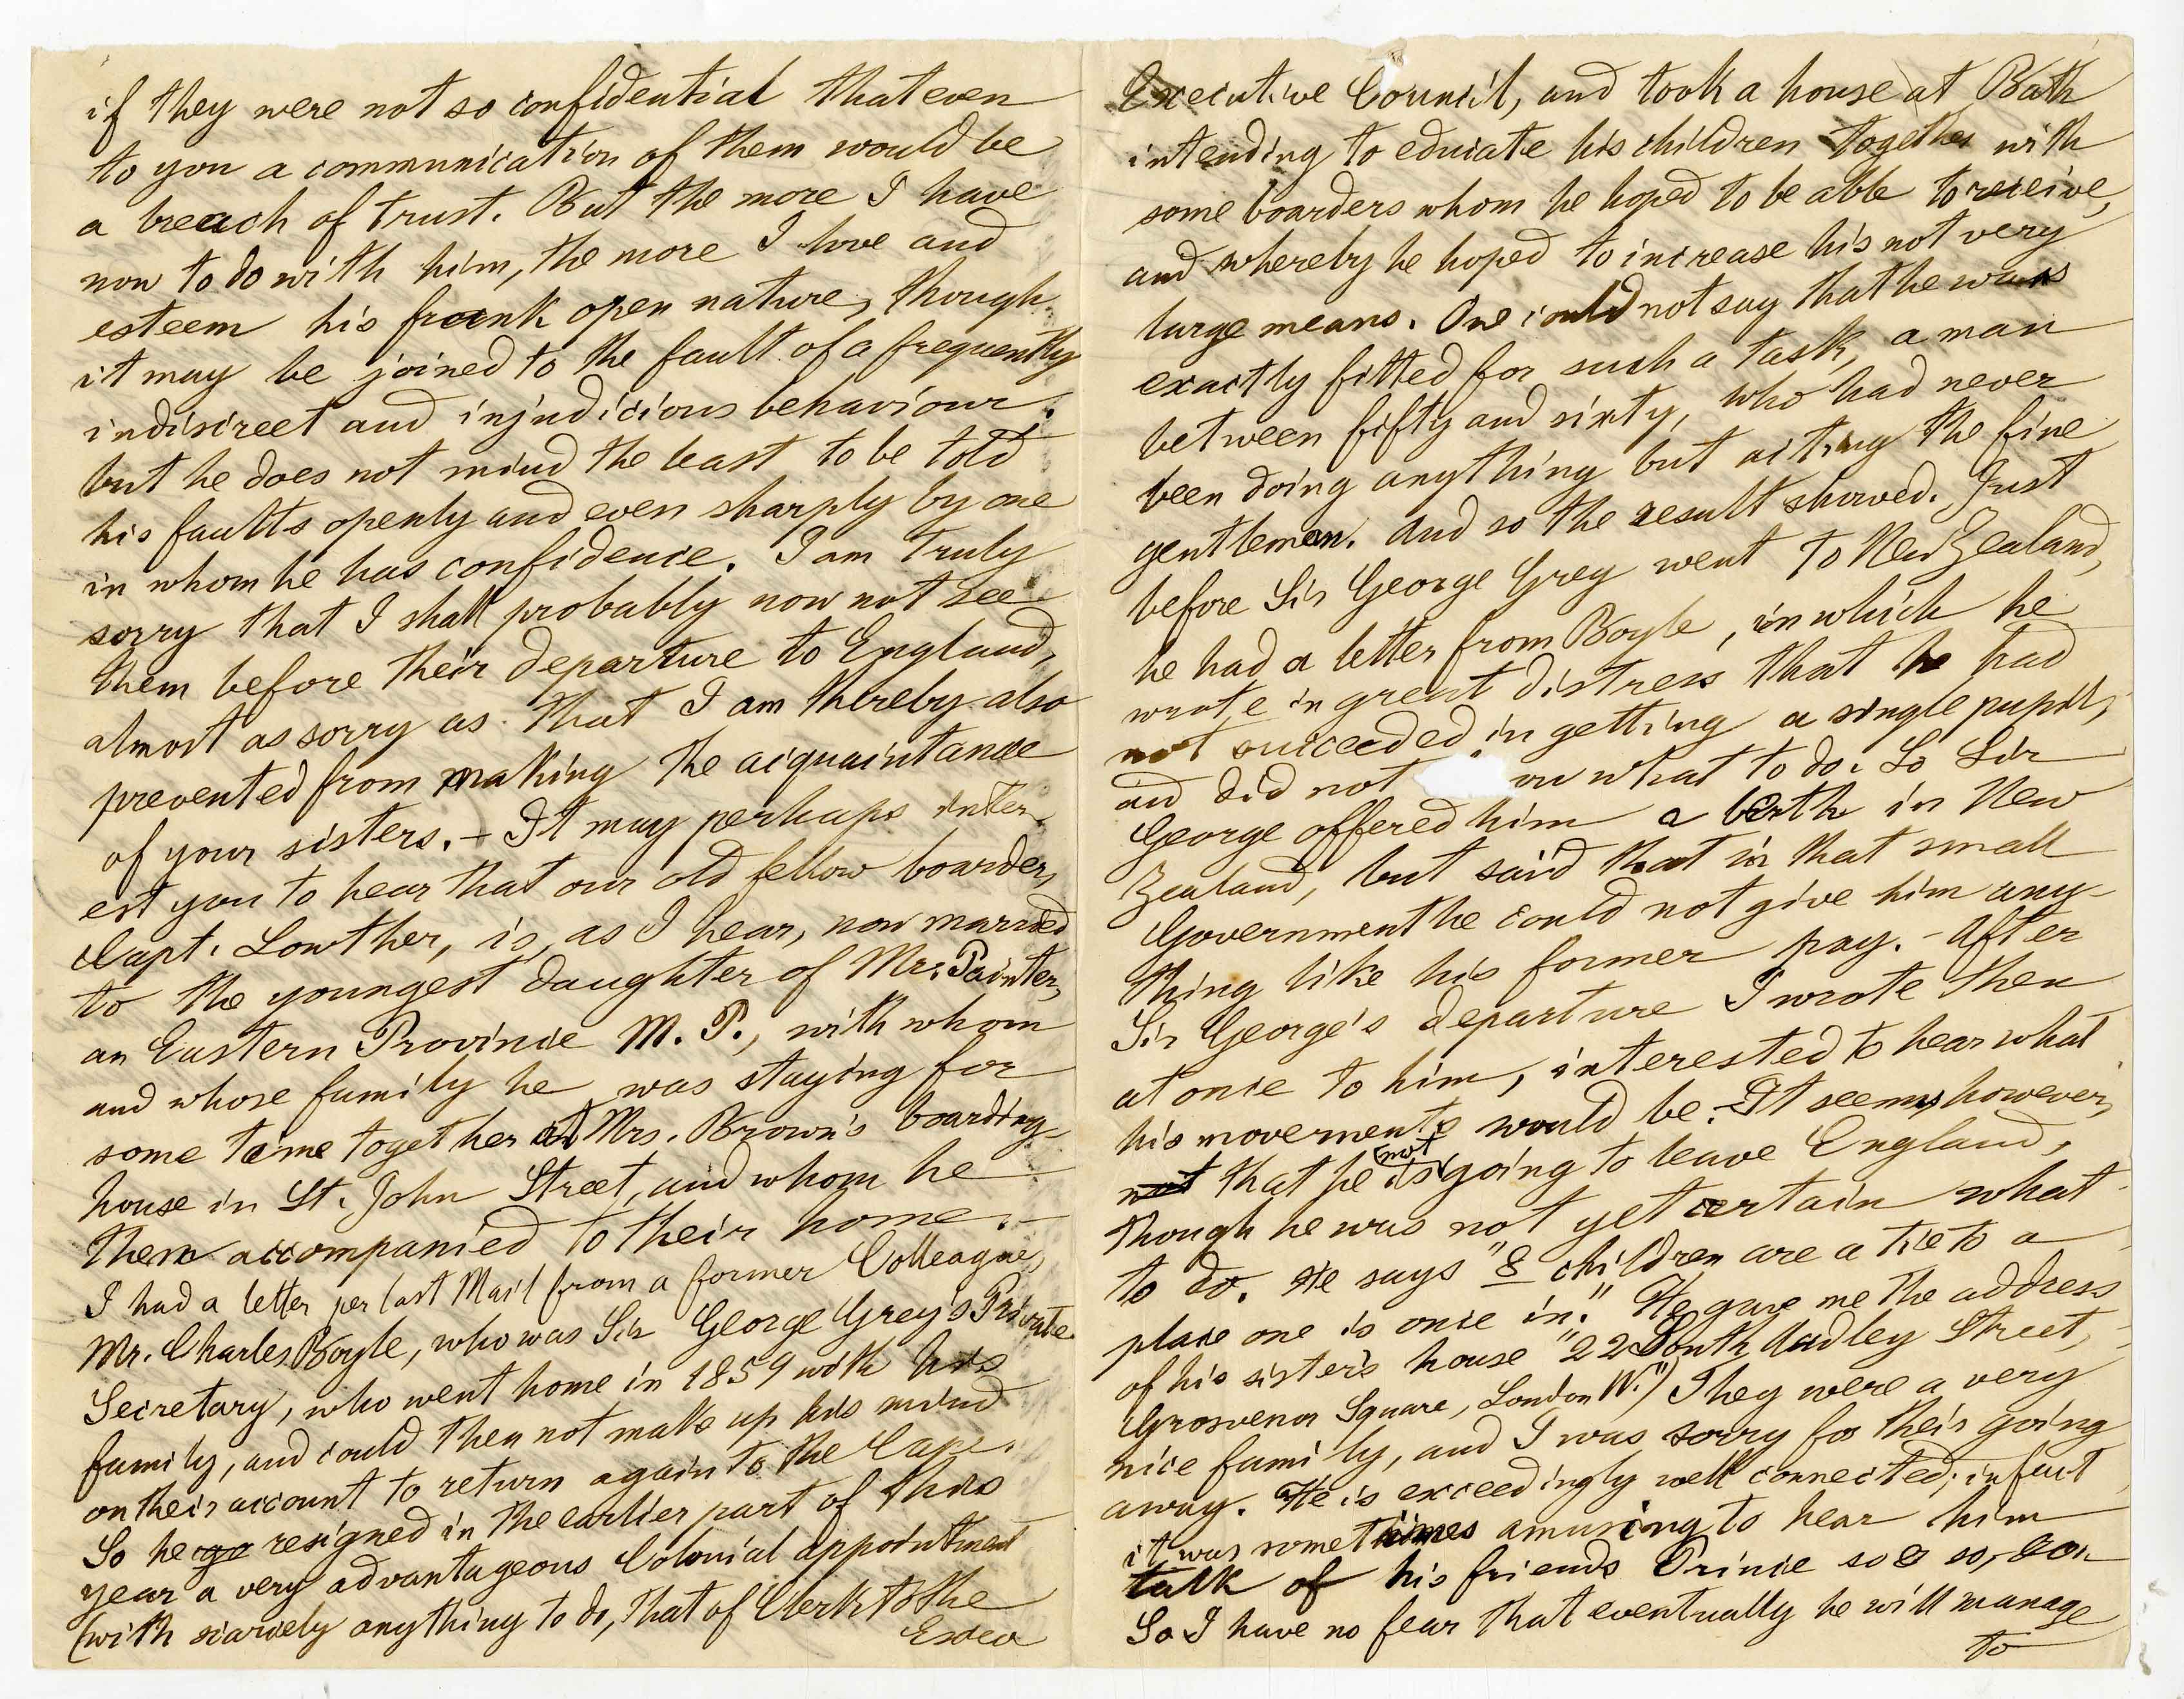 if they were not so confidential that even
to you a communication of them would be
a breach of trust. But the more I have
now to do with him, the more I love and
esteem his frank open nature, though
it may be joined to the fault of a frequently
indiscreet and injudicious behaviour.
but he does not mind the least to be told
his faults openly and even sharply by one
in whom he has confidence. I am truly
sorry that I shall probably now not see
them before their departure to England,
almost as sorry as that I am thereby also
prevented from making the acquaintance
of your sisters. – It may perhaps inter-
est you to hear that our old fellow boarder,
Capt. Lowther, is, as I hear, now married
to the youngest daughter of Mr. Painter,
an Eastern Province M. P., with whom
and whose family he was staying for
some time together at Mrs. Brown's boarding-
house in St. John Street, and whom he
then accompanied to their home. –
I had a letter per last Mail from a former Colleague,
Mr. Charles Boyle, who was Sir George Grey's Private
Secretary, who went home in 1859 with his
family, and could then not make up his mind
on their account to return again to the Cape.
So he go resigned in the earlier part of this
year a very advantageous Colonial appointment
(with scarcely anything to do, that of Clerk to the
Execu
Executive Council, and took a house at Bath
intending to educate his children together with
some boarders whom he hoped to be able to receive,
and whereby he hoped to increase his not very
large means. One could not say that he was
exactly fitted for such a task, a man
between fifty and sixty, who had never
been doing anything but acting the fine
gentleman. And so the result showed. Just
before Sir George Grey went to New Zealand,
he had a letter from Boyle, in which he
wrote in great distress that he had
not succeeded in getting a single pupil,
and did not ow what to do. So Sir
George offered him a berth in New
Zealand, but said that in that small
Government he could not give him any-
thing like his former pay. – After
Sir George's departure I wrote then
at once to him, interested to hear what
his movements would be. – It seems however,
not that he is not going to leave England,
though he was not yet certain what
to do. He says "8 children are a tie to a
place one is once in." He gave me the address
of his sister's house "22 South Audley Street,
Grosvenor Square, London W.") They were a very
nice family, and I was sorry for their going
away. He is exceedingly well connected; in fact
it was sometimes amusing to hear him
talk of his friends Prince so & so,
So I have no fear that eventually he will manage
to